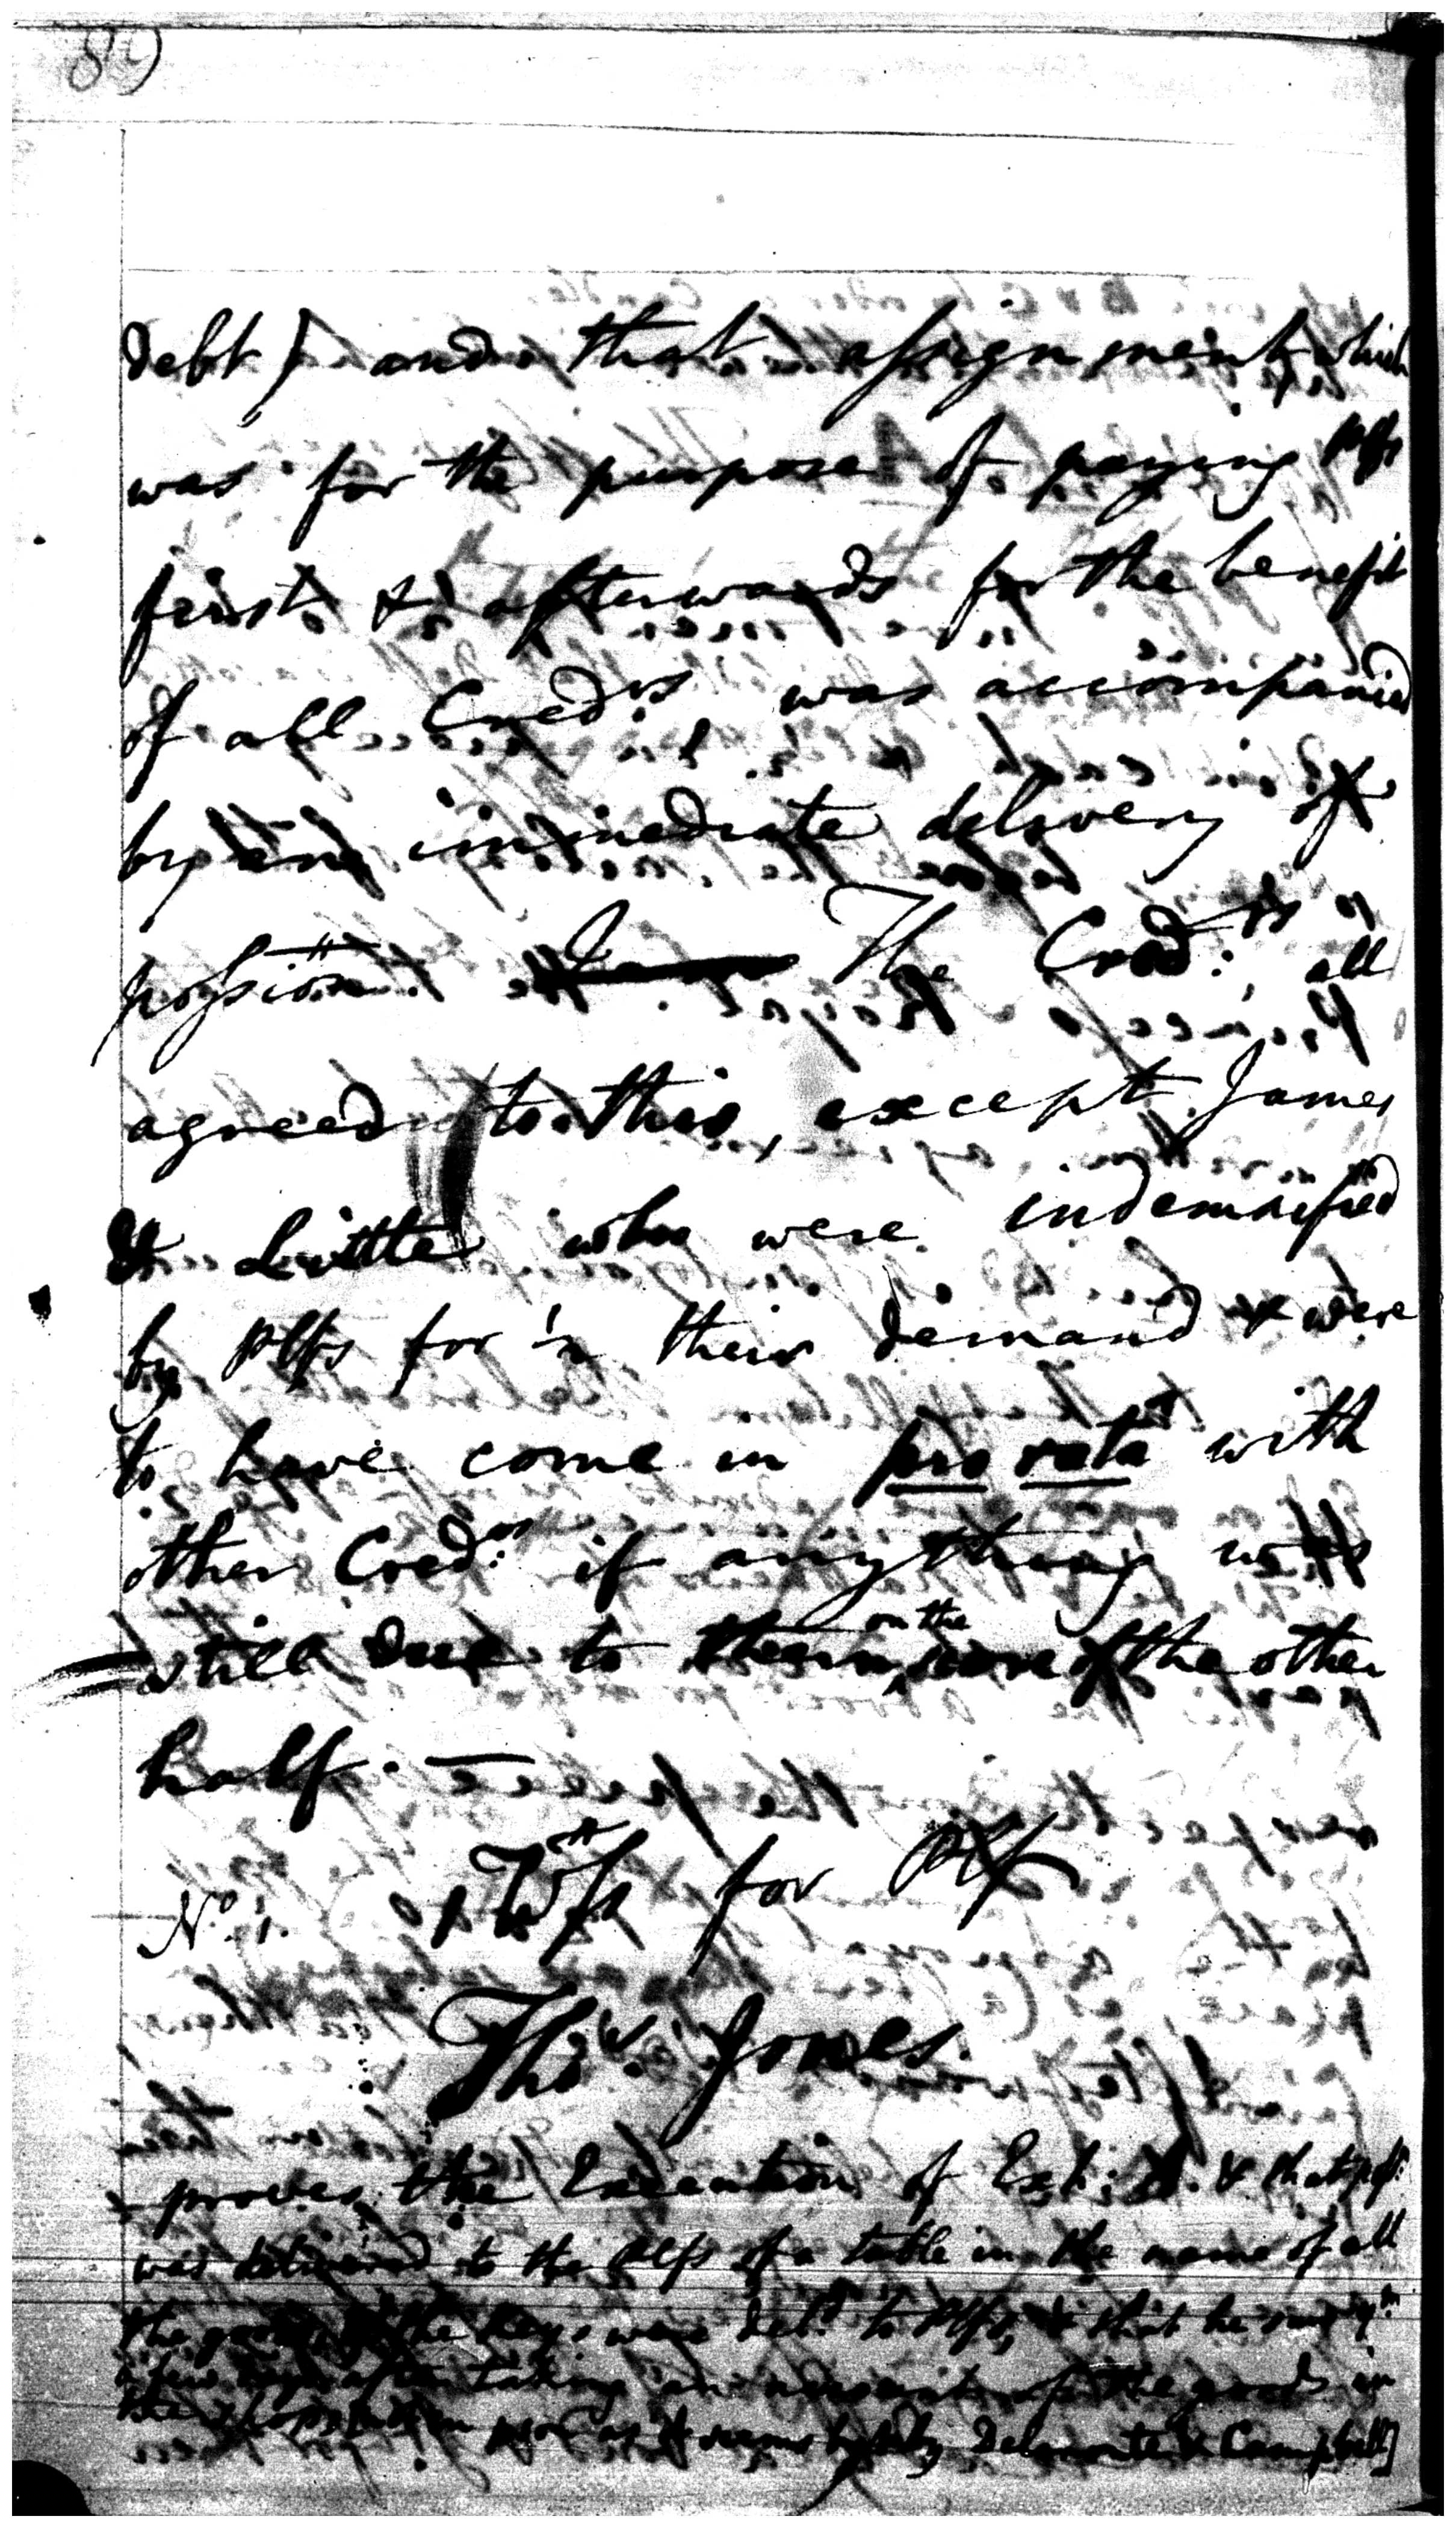 debt) and that assignment which
was for the purpose of paying plfs
first & afterwards for the benefit
of all Credrs was accompanied
by an immediate delivery of
possion The Cred:rs all
agreed to this, except James
& Little who were indemnified
by plfs for ½ their demand & were
to have come in pro rata with
other Cred:rs if anything was
still due to them on the score of the other
half. —
No. 1. 1 Wss for Plf
Thos. Jones.
proves the Execution of Exh: & that
was delivered to the plfs of a table in the name of all
the goods, the keys were deld to Plfs, & that he saw ym
a few days after taking an account of the goods in
the shop as it seems Delamonte & Campbell]